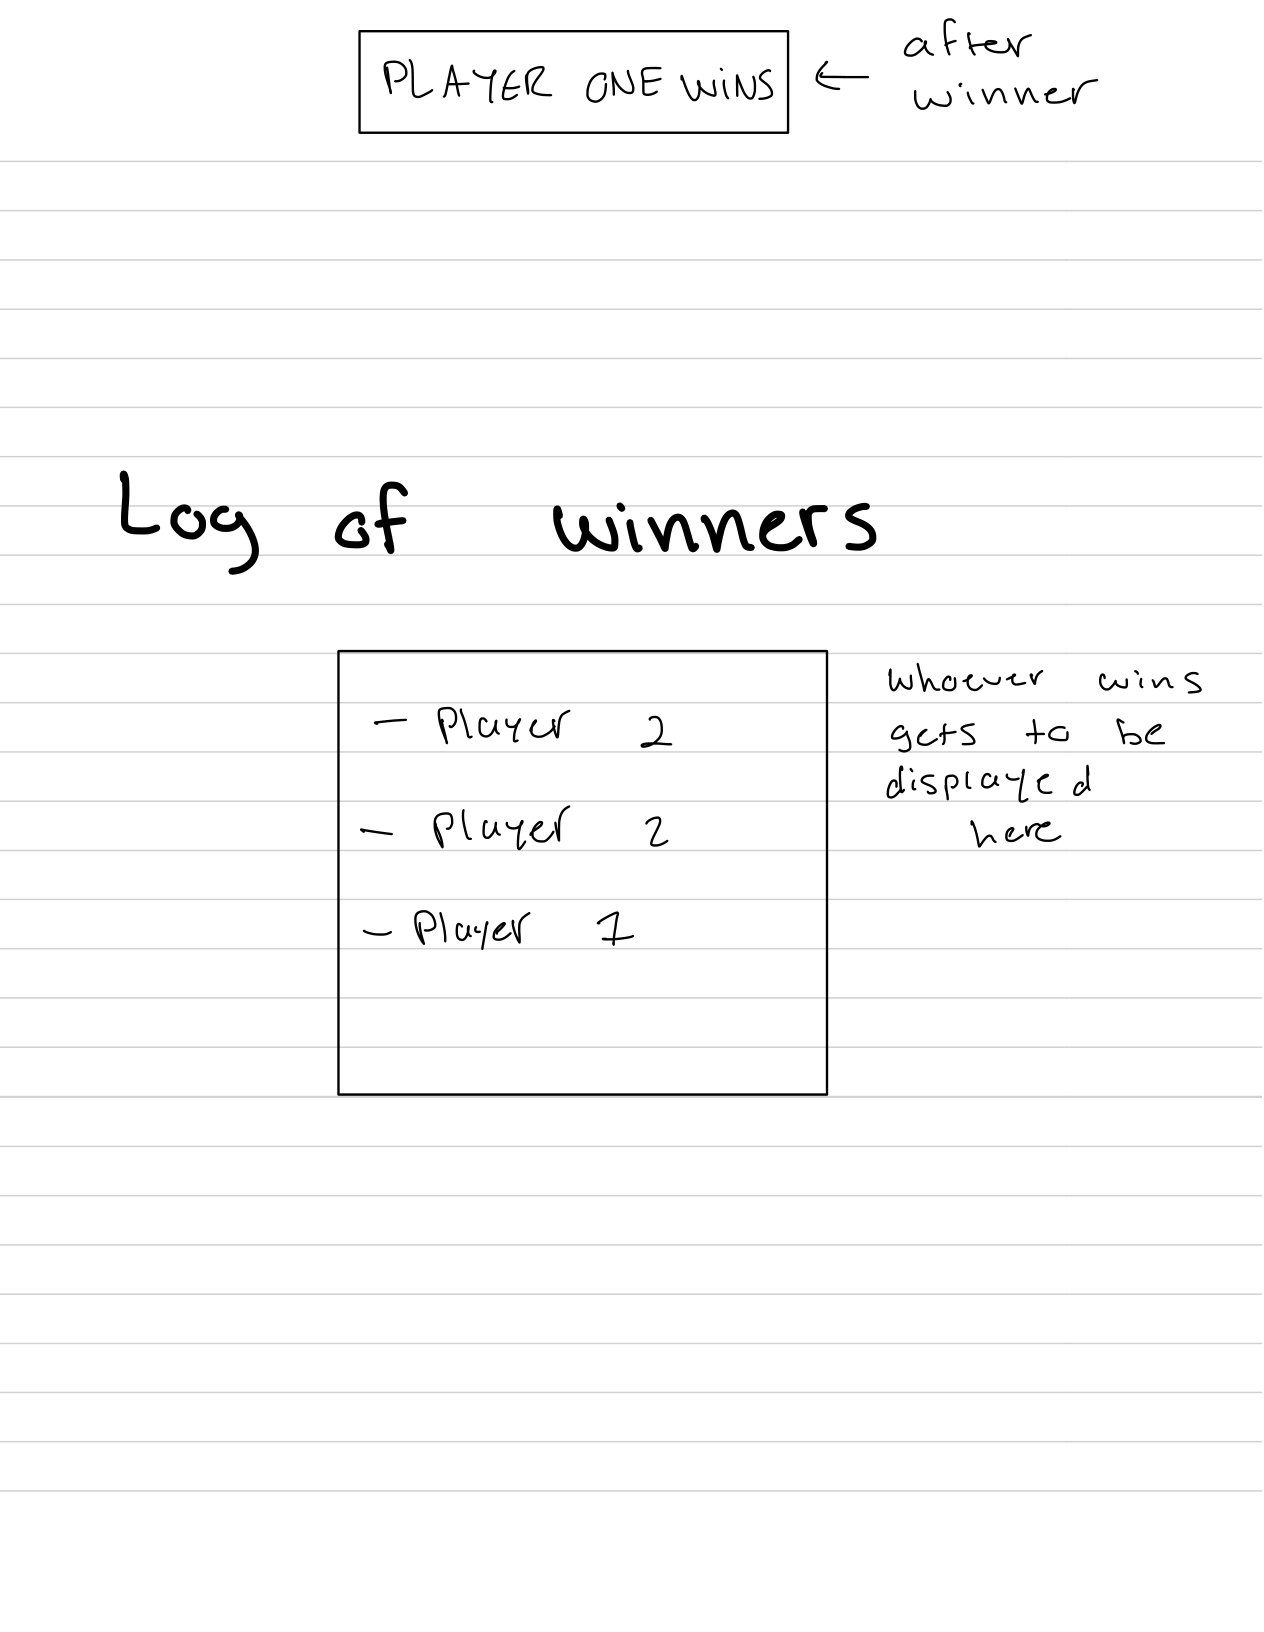 PLAYER ONE WINS ← after
winner
Log of winners
- Player 2
- Player 2
- Player 1
whoever wins
gets to be
displayed
here